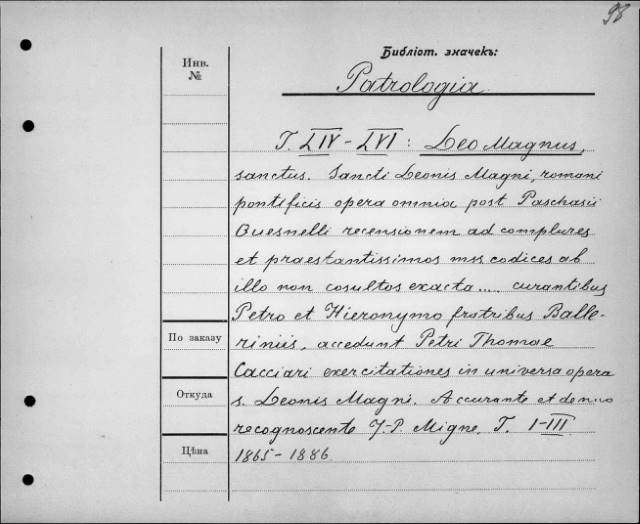 98
Библіот. значекъ:
Инв.
№
Patrologia
T. LIV-LVI: Leo Magnus,
sanctus. Sancti Leonis Magni, romani
pontificis opera omnia post Paschasii
Quesnelli recensionem ad complures
et praestantissimos mss. codices ab
illo non cosultos exacta..... curantibus
Petro et Hieronymo fratribus Balle-
riniis, accedunt Petri Thomae
По заказу
Cacciari exercitationes in universa opera
Откуда
s. Leonis Magni. Accurante et denuo
recognoscente J-P. Migne. T. I-III
Цѣна
1865-1886.